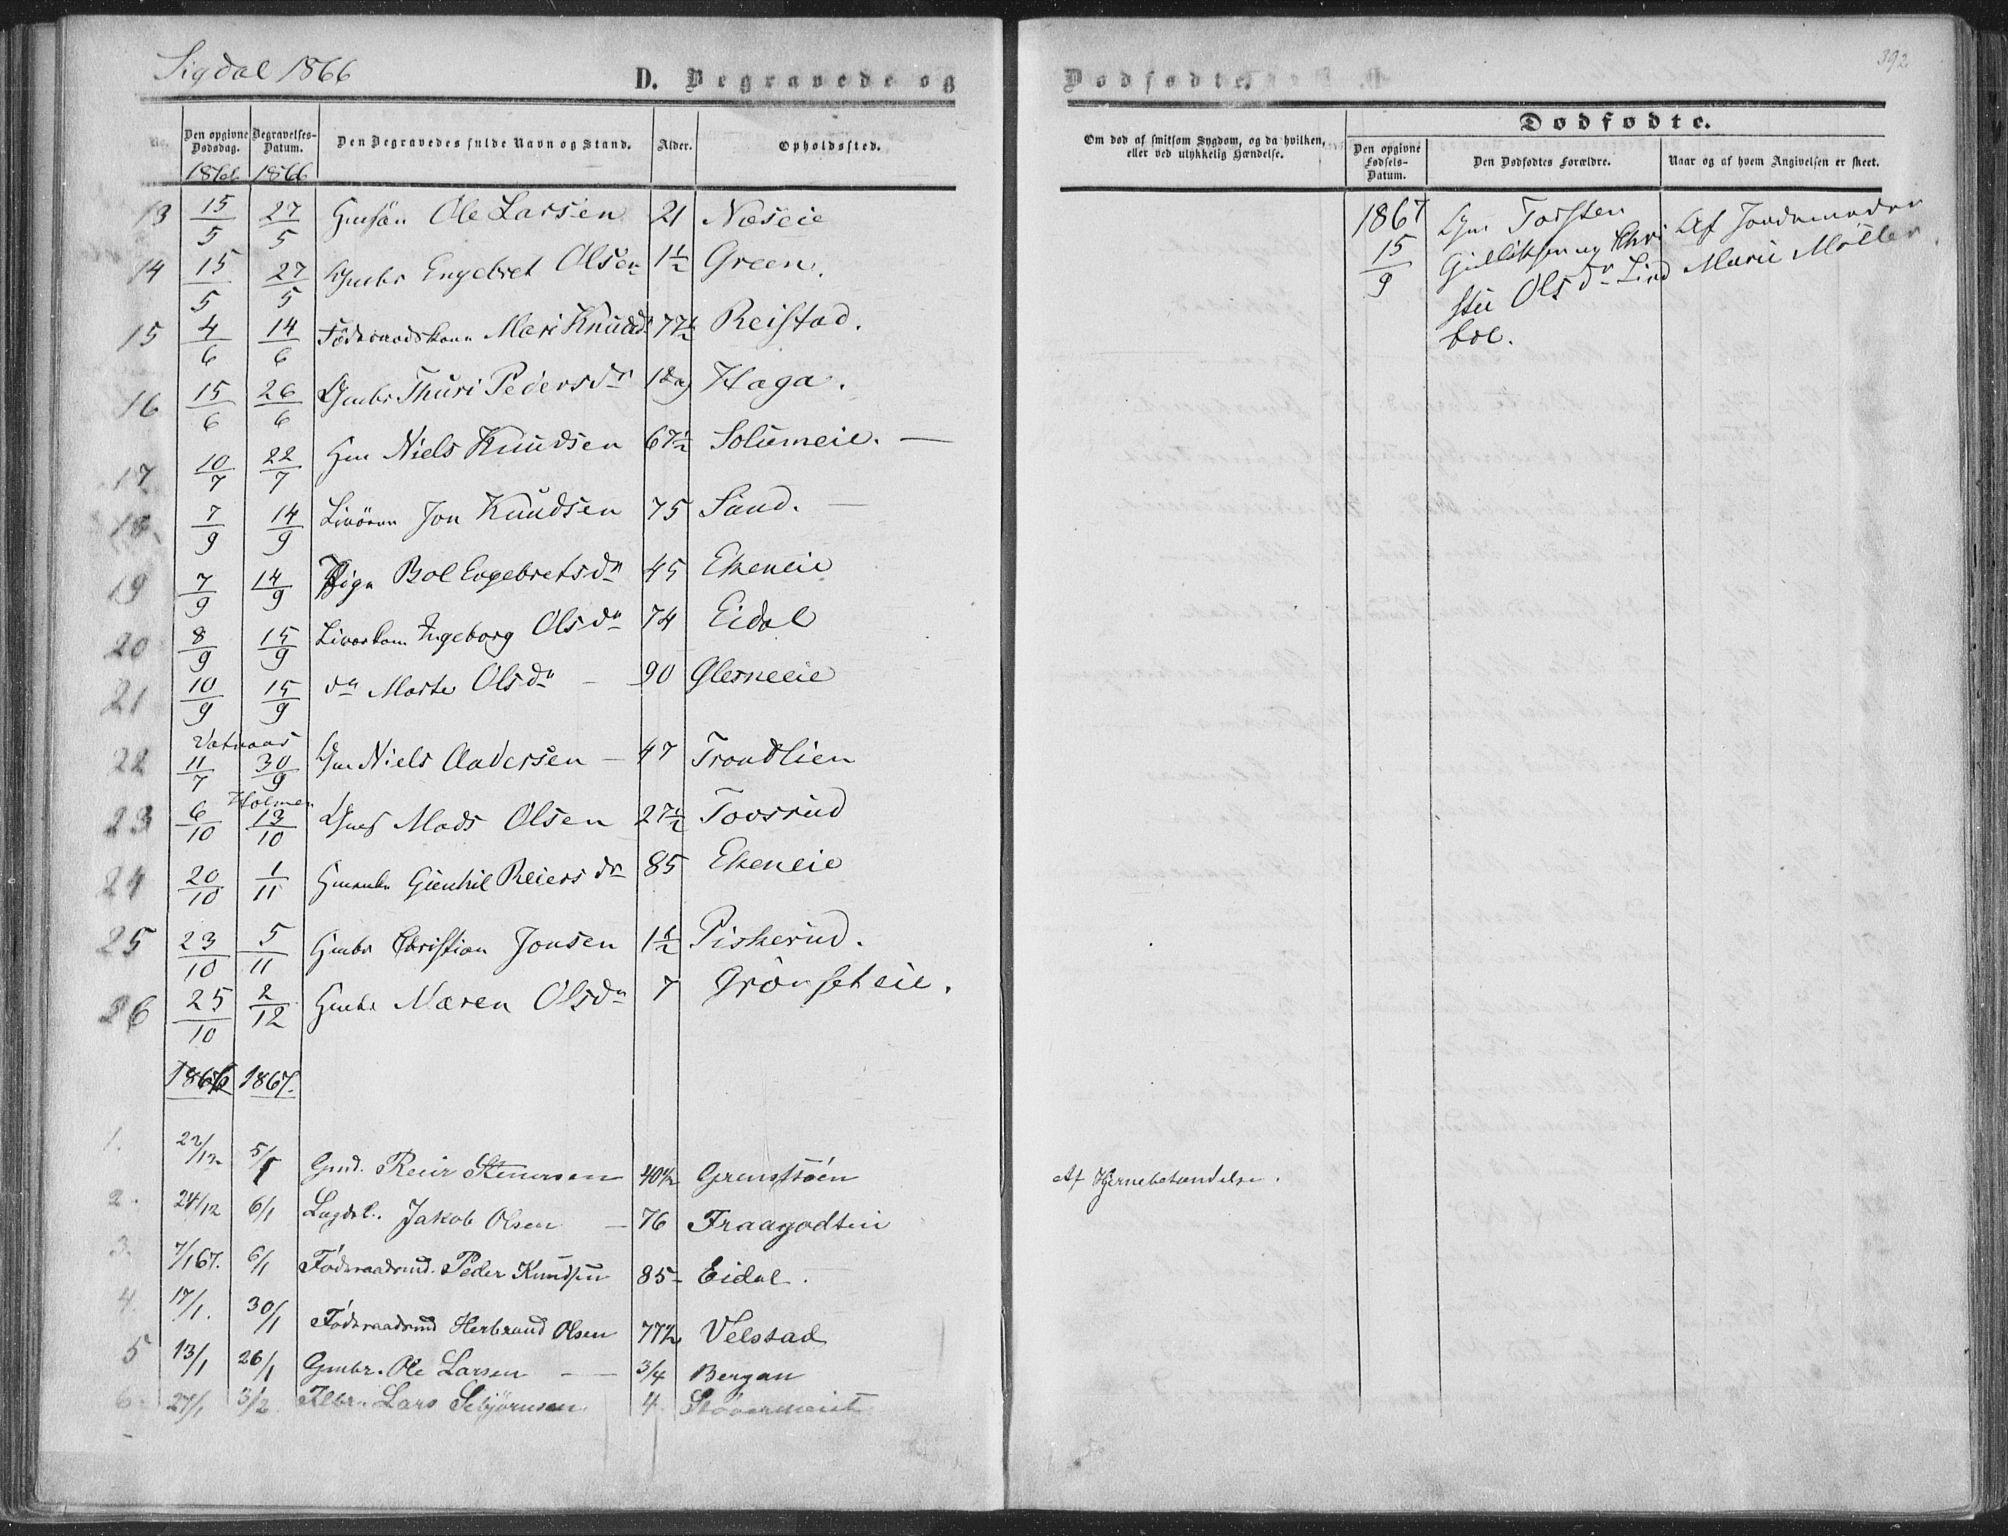 Sigdal 1866
D. Begravede og
No. Den opgivne Dødsdag. Begravelses-Datum. Den Begravedes fulde Navn og Stand. Alder. Opholdssted.
1866 1866
13 15/5 27/5 Ole Larsen 21 Næseie
14 15/5 27/5 Engebret Olsen 1½ Green.
15 4/6 14/6 Mari Knudsd. 77½ Reistad.
16 15/6 26/6 Gmbr Thuri Pedersdr 1 dag Haga.
17 10/7 22/7 Hm Niels Knudsen 67½ Solumeie. —
18 7/9 14/9 Jon Knudsen 75 Sand. —
19 7/9 14/9 Pige Bol Engebretsdr 45 Ekeneie
20 8/9 15/9 Ingeborg Olsdr 74 Eidal
21 10/9 15/9 do Marte Olsdr — 90 Glesneeie
Vatnaas
22 11/7 30/9 Gm Niels Andersen — 47 Trondlien
Holmen
23 6/10 13/10 Mads Olsen 27½ Tovsrud
24 20/10 1/11 Hmenke Gunhil Reiersdr 85 Ekeneie
25 23/10 5/11 Gmbr Christian Jonsen 1½ Piskerud.
26 25/10 2/12 Hmbr Maren Olsdr 7 Grönseteie.
1866 1867.
1. 22/12 5/1 Gmd. Reier Stenersen 40½ Grenskoen
2. 24/12 6/1 Lægdsl. Jakob Olsen — 76 Fraagodtein
3. 7/1 67. 6/1 Föderaadmd. Peder Knudsen 85 - Eidal.
4. 17/1. 30/1 Föderaadmd Herbrand Olsen 77½ Velstad
5 13/1 26/1 Gmbr. Ole Larsen — 3/4 Bergan
6. 27/1 3/2 Lars 4
392
Dødfødte.
Om død af smitsom Sygdom, og da hvilken, eller ved ulykkelig Hændelse.
Dødfødte.
Den opgivne Fødsels-Datum. Den Dødfødtes Forældre. Naar og af hvem Angivelsen er skeet.
1867 Gm Torsten Af Jordemoder
15/9 Gulliksen og Chri Marie Möller.
stie Olsdr Lind
bol.
Af Hjernebetændelse.